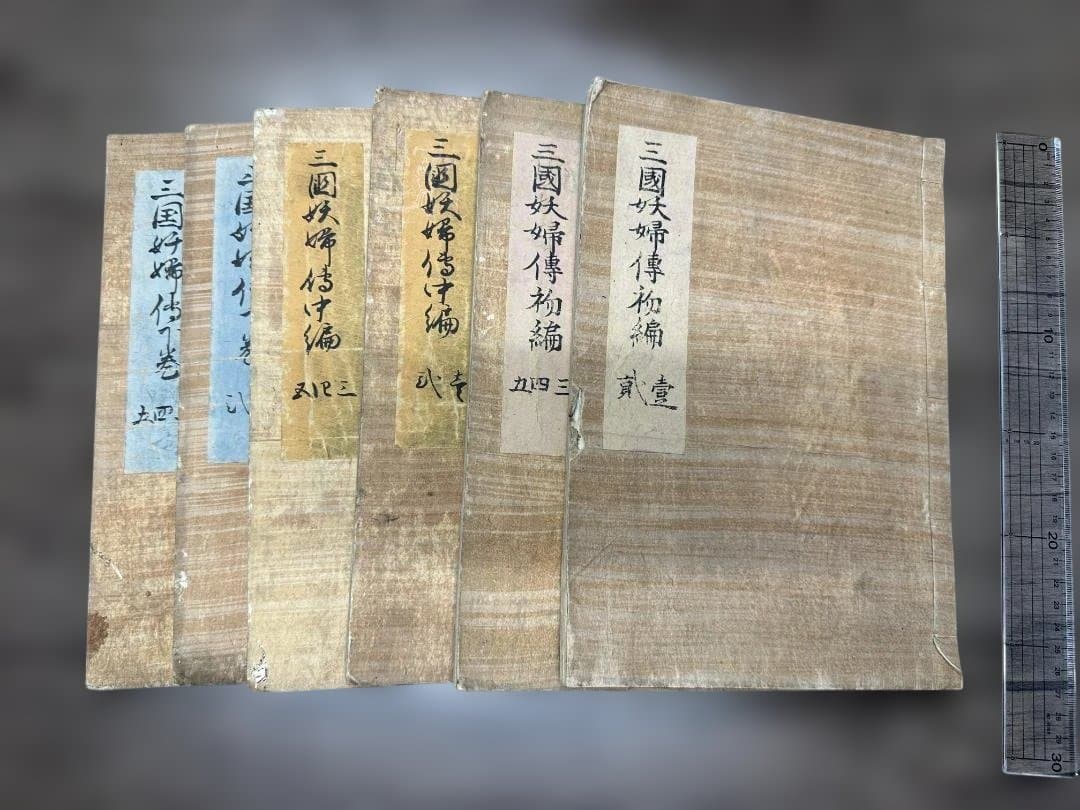 三國妖婦傳初編
壹
貳
三國妖婦傳初編
三
四
五
三國妖婦傳中編
壹
弍
三國妖婦傳中編
三
四
五
三国妖婦傳下巻
四
五
0
10
20
30